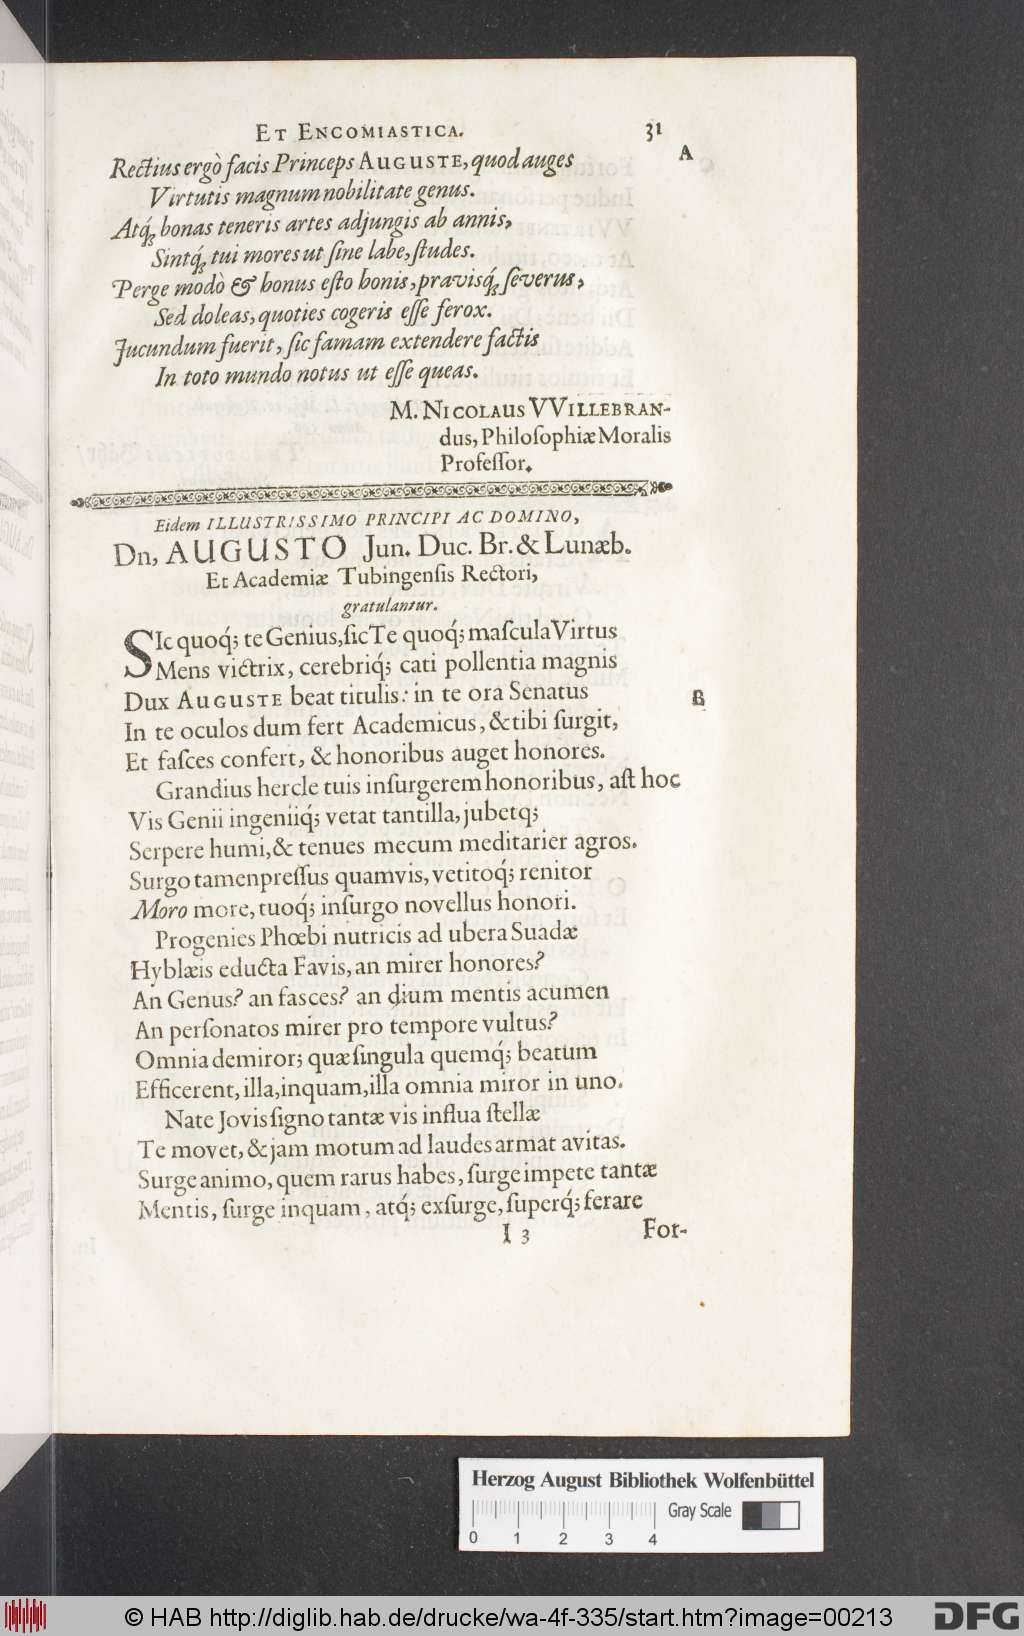 ET ENCOMIASTICA. 31
Rectius ergò facis Princeps AUGUSTE, quod auges A
Virtutis magnum nobilitate genus.
Atq́ꝫ bonas teneris artes adjungis ab annis,
Sintq́ꝫ tui mores ut ſine labe, ſtudes.
Perge modò & bonus eſto bonis, pravisq́ꝫ ſeverus,
Sed doleas, quoties cogeris eſſe ferox.
Jucundum fuerit, ſic famam extendere factis
In toto mundo notus ut eſſe queas.
M. NICOLAUS VVILLEBRAN-
dus, Philoſophiæ Moralis
Profeſſor.
Eidem ILLUSTRISSIMO PRINCIPI AC DOMINO,
Dn, AUGUSTO Jun. Duc. Br. & Lunæb.
Et Academiæ Tubingenſis Rectori,
gratulantur.
SIc quoq́; te Genius, ſic Te quoq́; maſcula Virtus
Mens victrix, cerebriq́; cati pollentia magnis
Dux AUGUSTE beat titulis: in te ora Senatus B
In te oculos dum fert Academicus, & tibi ſurgit,
Et faſces confert, & honoribus auget honores.
Grandius hercle tuis inſurgerem honoribus, aſt hoc
Vis Genii ingeniiq́; vetat tantilla, jubetq;
Serpere humi, & tenues mecum meditarier agros.
Surgo tamen preſſus quamvis, vetitoq́; renitor
Moro more, tuoq́; inſurgo novellus honori.
Progenies Phœbi nutricis ad ubera Suadæ
Hyblæis educta Favis, an mirer honores?
An Genus? an fasces? an dium mentis acumen
An perſonatos mirer pro tempore vultus?
Omnia demiror; quæ ſingula quemq́; beatum
Efficerent, illa, inquam, illa omnia miror in uno.
Nate Jovis ſigno tantæ vis influa ſtellæ
Te movet, & jam motum ad laudes armat avitas.
Surge animo, quem rarus habes, ſurge impete tantæ
Mentis, ſurge inquam, atq́; exſurge, ſuperq́; ferare
I 3 For-
Herzog August Bibliothek Wolfenbüttel
Gray Scale
0 1 2 3 4
© HAB http://diglib.hab.de/drucke/wa-4f-335/start.htm?image=00213 DFG